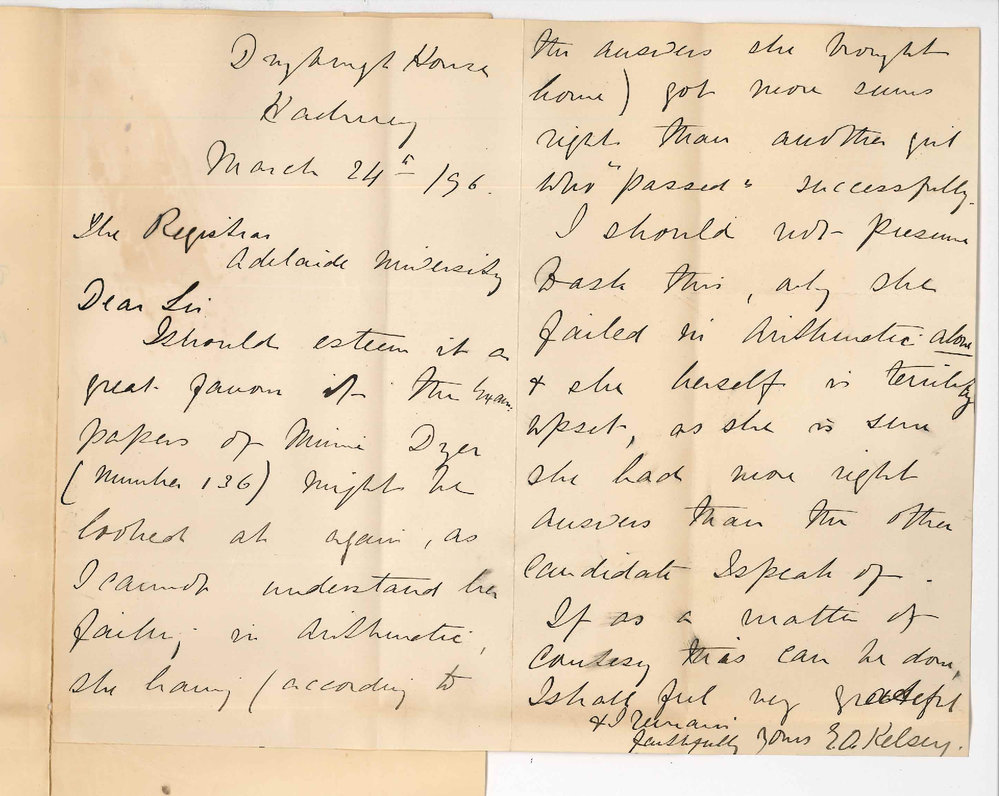 Dryburgh House
Hackney
March 24th /96.
The Registrar
Adelaide University
Dear Sir
I should esteem it a
great favour if the Exam:
papers of Minnie Dyer
(number 136) might be
looked at again, as
I cannot understand her
failing in Arithmetic,
she having (according to
the answers she brought
home) got more sums
right than another girl
who "passed" successfully.
I should not presume
to ask this, only she
failed in Arithmetic alone
& she herself is terribly
upset, as she is sure
she had more right
answers than the other
candidate I speak of.
If as a matter of
courtesy this can be done,
I shall feel very grateful
& I remain
faithfully yours E A Kelsey.